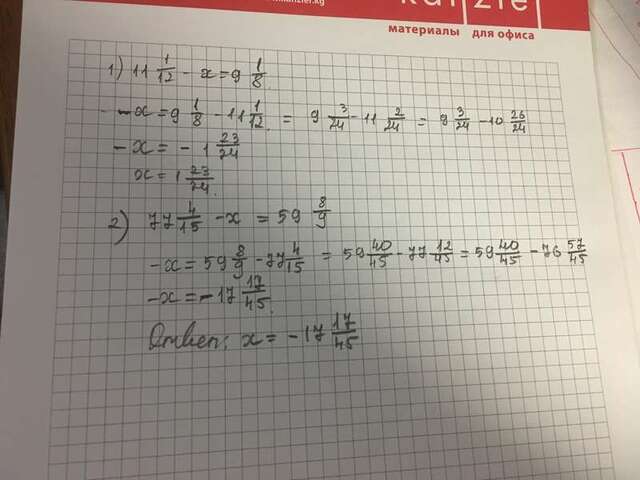 1) 11 1/12 - x = 9 1/8
- x = 9 1/8 - 11 1/12 = 9 3/24 - 11 2/24 = 9 3/24 - 10 26/24
- x = - 1 23/24
x = 1 23/24
2) 77 4/15 - x = 59 8/9
- x = 59 8/9 - 77 4/15 = 59 40/45 - 77 12/45 = 59 40/45 - 76 57/45
- x = - 17 17/45
Ответ: x = - 17 17/45
материалы для офиса